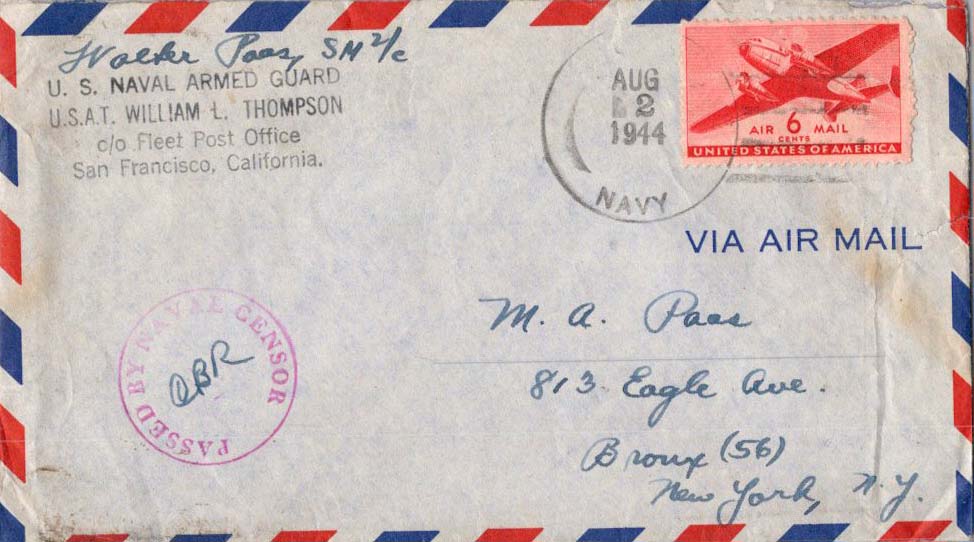 Walter Paas, SM 2/c
U. S. NAVAL ARMED GUARD
U.S.A.T. WILLIAM L. THOMPSON
c/o Fleet Post Office
San Francisco, California.
AUG
2
1944
NAVY
AIR 6 MAIL
CENTS
UNITED STATES OF AMERICA
VIA AIR MAIL
PASSED BY NAVAL CENSOR
M. A. Paas
813 Eagle Ave.
Bronx (56)
New York, N.Y.